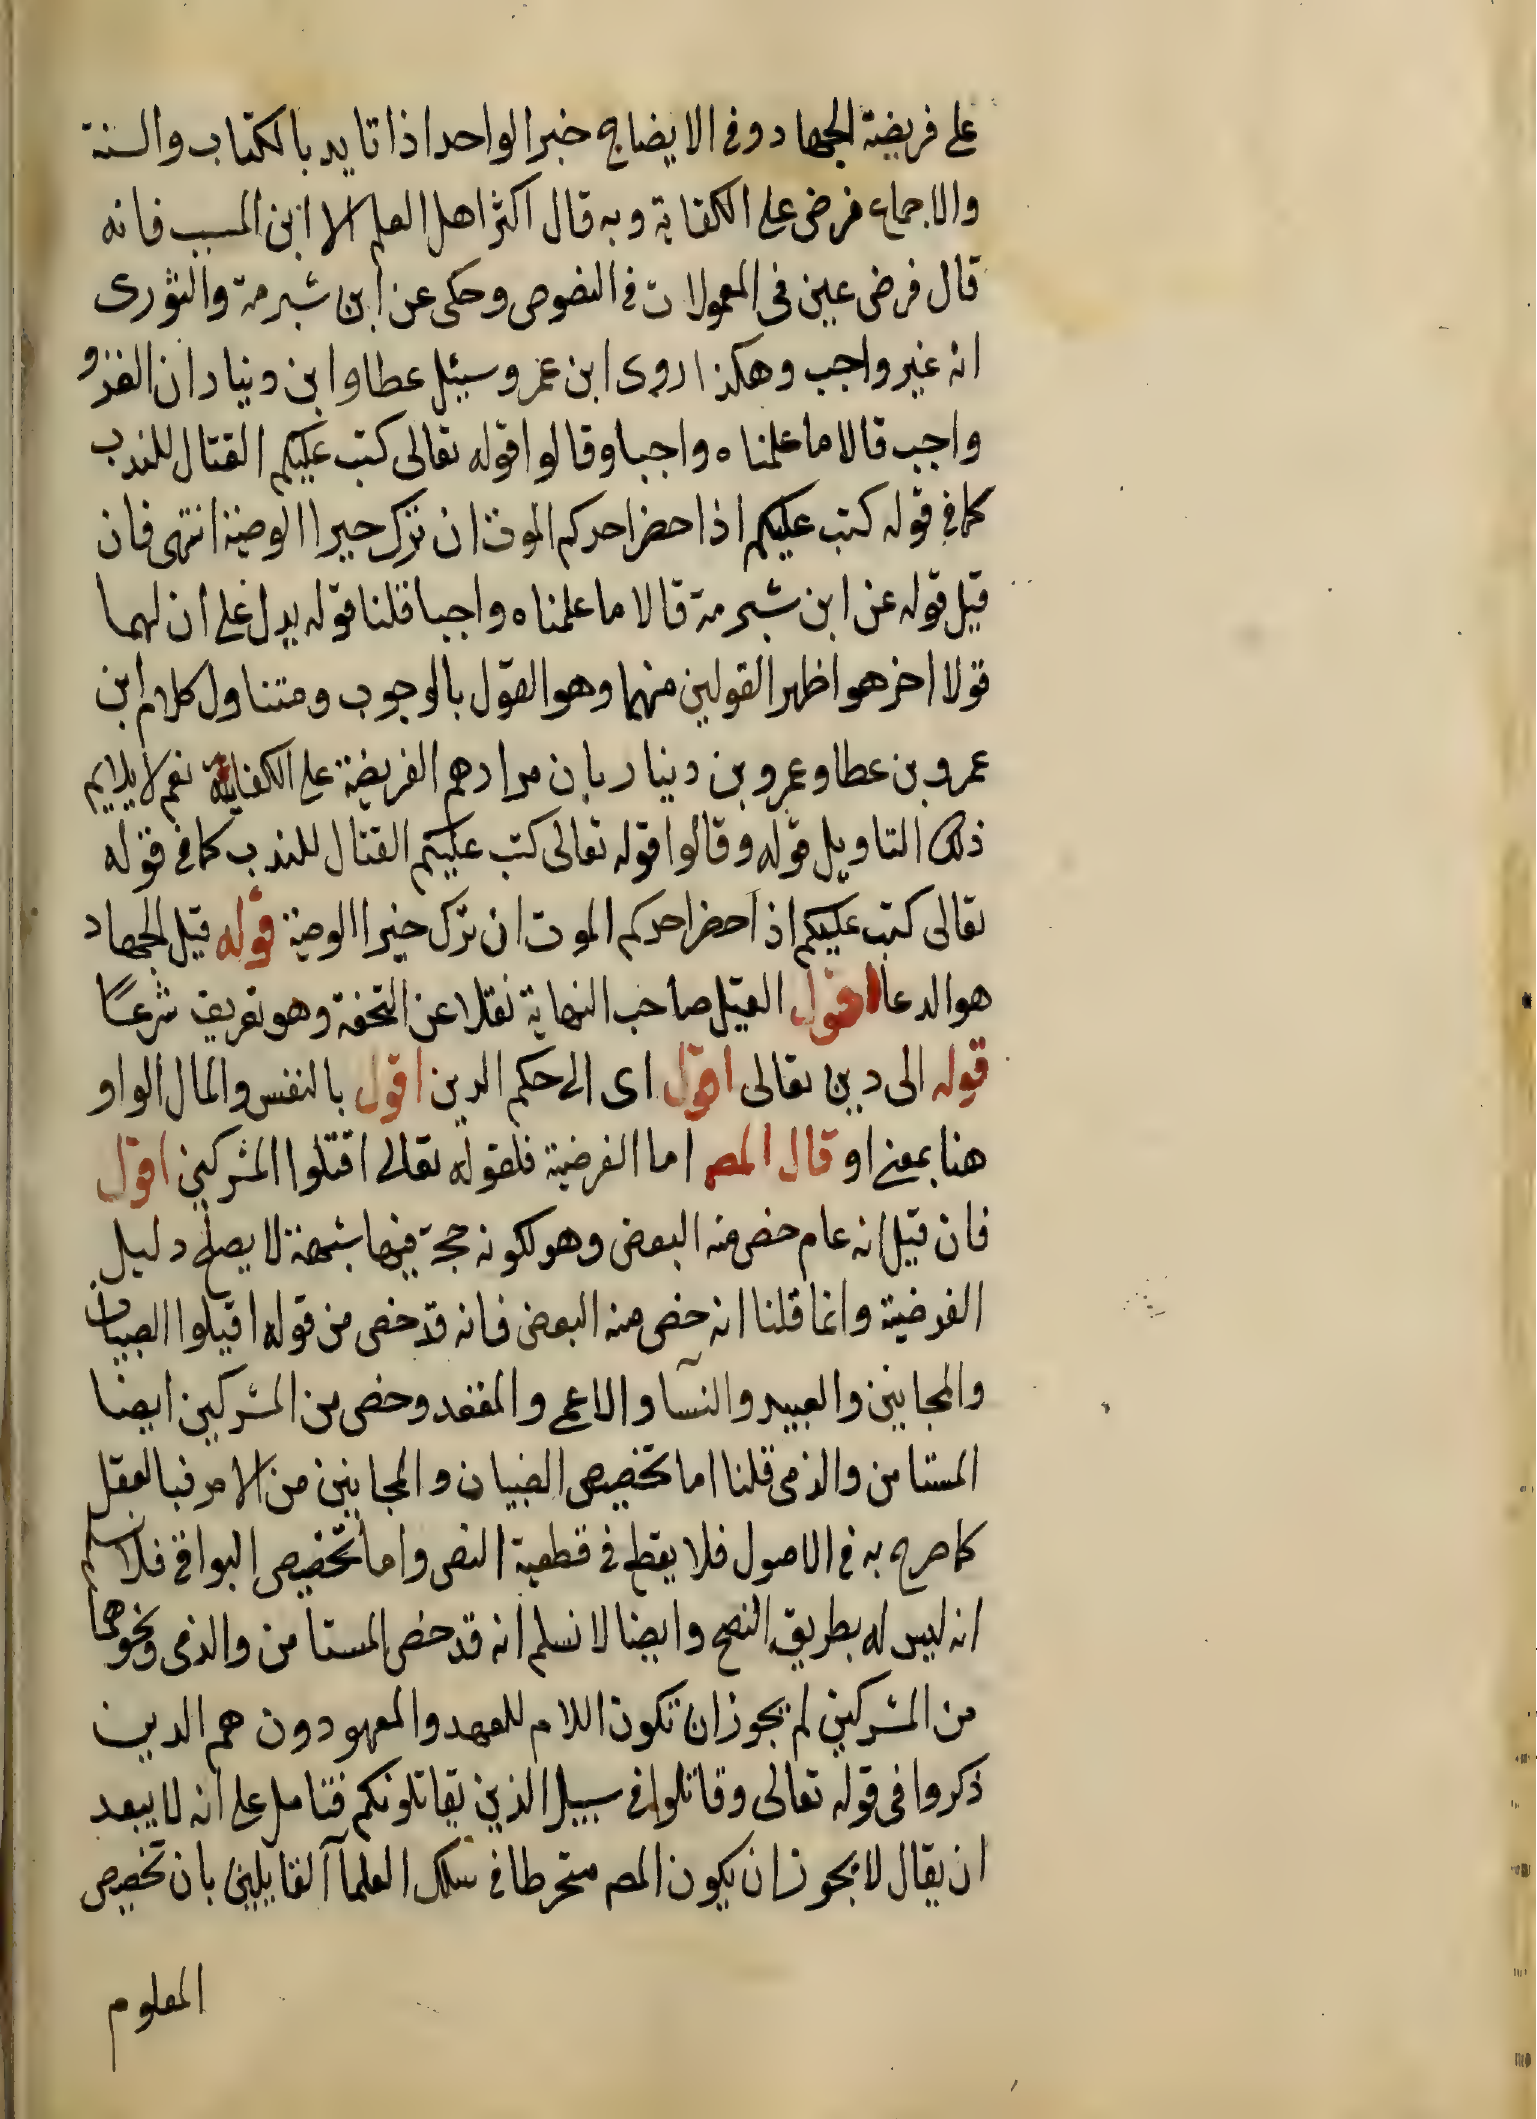 على فريضة الجهاد وفى الايضاح خبر الواحد اذا تايد بالكتاب والسنة
والاجماع فرض على الكفاية وبه قال اكثر اهل العلم الا ابن المسيب فانه
قال فرض عين فى المعمولات فى النصوص وحكى عن ابن شبرمة والثورى
انه غير واجب وهكذا روى ابن عمر وسيئل عطا وابن دينار ان الغزو
واجب قالا ما علمناه واجبا وقالوا قوله تعالى كتب عليكم القتال للندب
كما فى قوله كتب عليكم اذا حضر احدكم الموت ان ترك خيرا الوصية انتهى فان
قيل قوله عن ابن شبرمة قالا ما علمناه واجبا قلنا قوله يدل على ان لهما
قولا اخر هو اظهر القولين منهما وهو القول بالوجوب ومتناول كلام ابن
عمرو بن عطا وعمرو بن دينار بان مرادهم الفريضة على الكفاية نعم لا يلايم
ذلك التاويل قوله وقالوا قوله تعالى كتب عليكم القتال للندب كما فى قوله
تعالى كتب عليكم اذا حضر احدكم الموت ان ترك خيرا الوصية قوله قيل الجهاد
هو الدعا اقول القيل صاحب النهاية نقلا عن التحفة وهو تعريف شرعًا
قوله الى دين تعالى اقول اى الى حكم الدين اقول بالنفس والمال الواو
هنا بمعنى او قال المص اما الفرضية فلقوله تعالى اقتلوا المشركين اقول
فان قيل انه عام خص منه البعض وهو لكونه حجة فيها شبهة لا يصلح دليل
الفرضية وانما قلنا انه خص منه البعض فانه قد خص من قوله اقتلوا الصبيان
والمجانين والعبيد والنسآ والاعمى والمقعد وخص من المشركين ايضا
المستامن والذمى قلنا اما تخصيص الصبيان والمجانين من الامر فبالعقل
كما صرح به فى الاصول فلا يقطع فى قطعية النص واما تخصيص البواقى فلا نسلم
انه ليس له بطريق النسخ وايضا لا نسلم انه قد خص المستامن والذمى ونحوهما
من المشركين لم يجوز ان تكون اللام للعهد والمعهودون هم الدين
ذكروا فى قوله تعالى وقاتلوا فى سبيل الذين يقاتلونكم فتامل على انه لا يبعد
ان يقال لا يجوز ان يكون المص منخرطا فى سلك العلمآ القايلين بان تخصيص
المعلوم